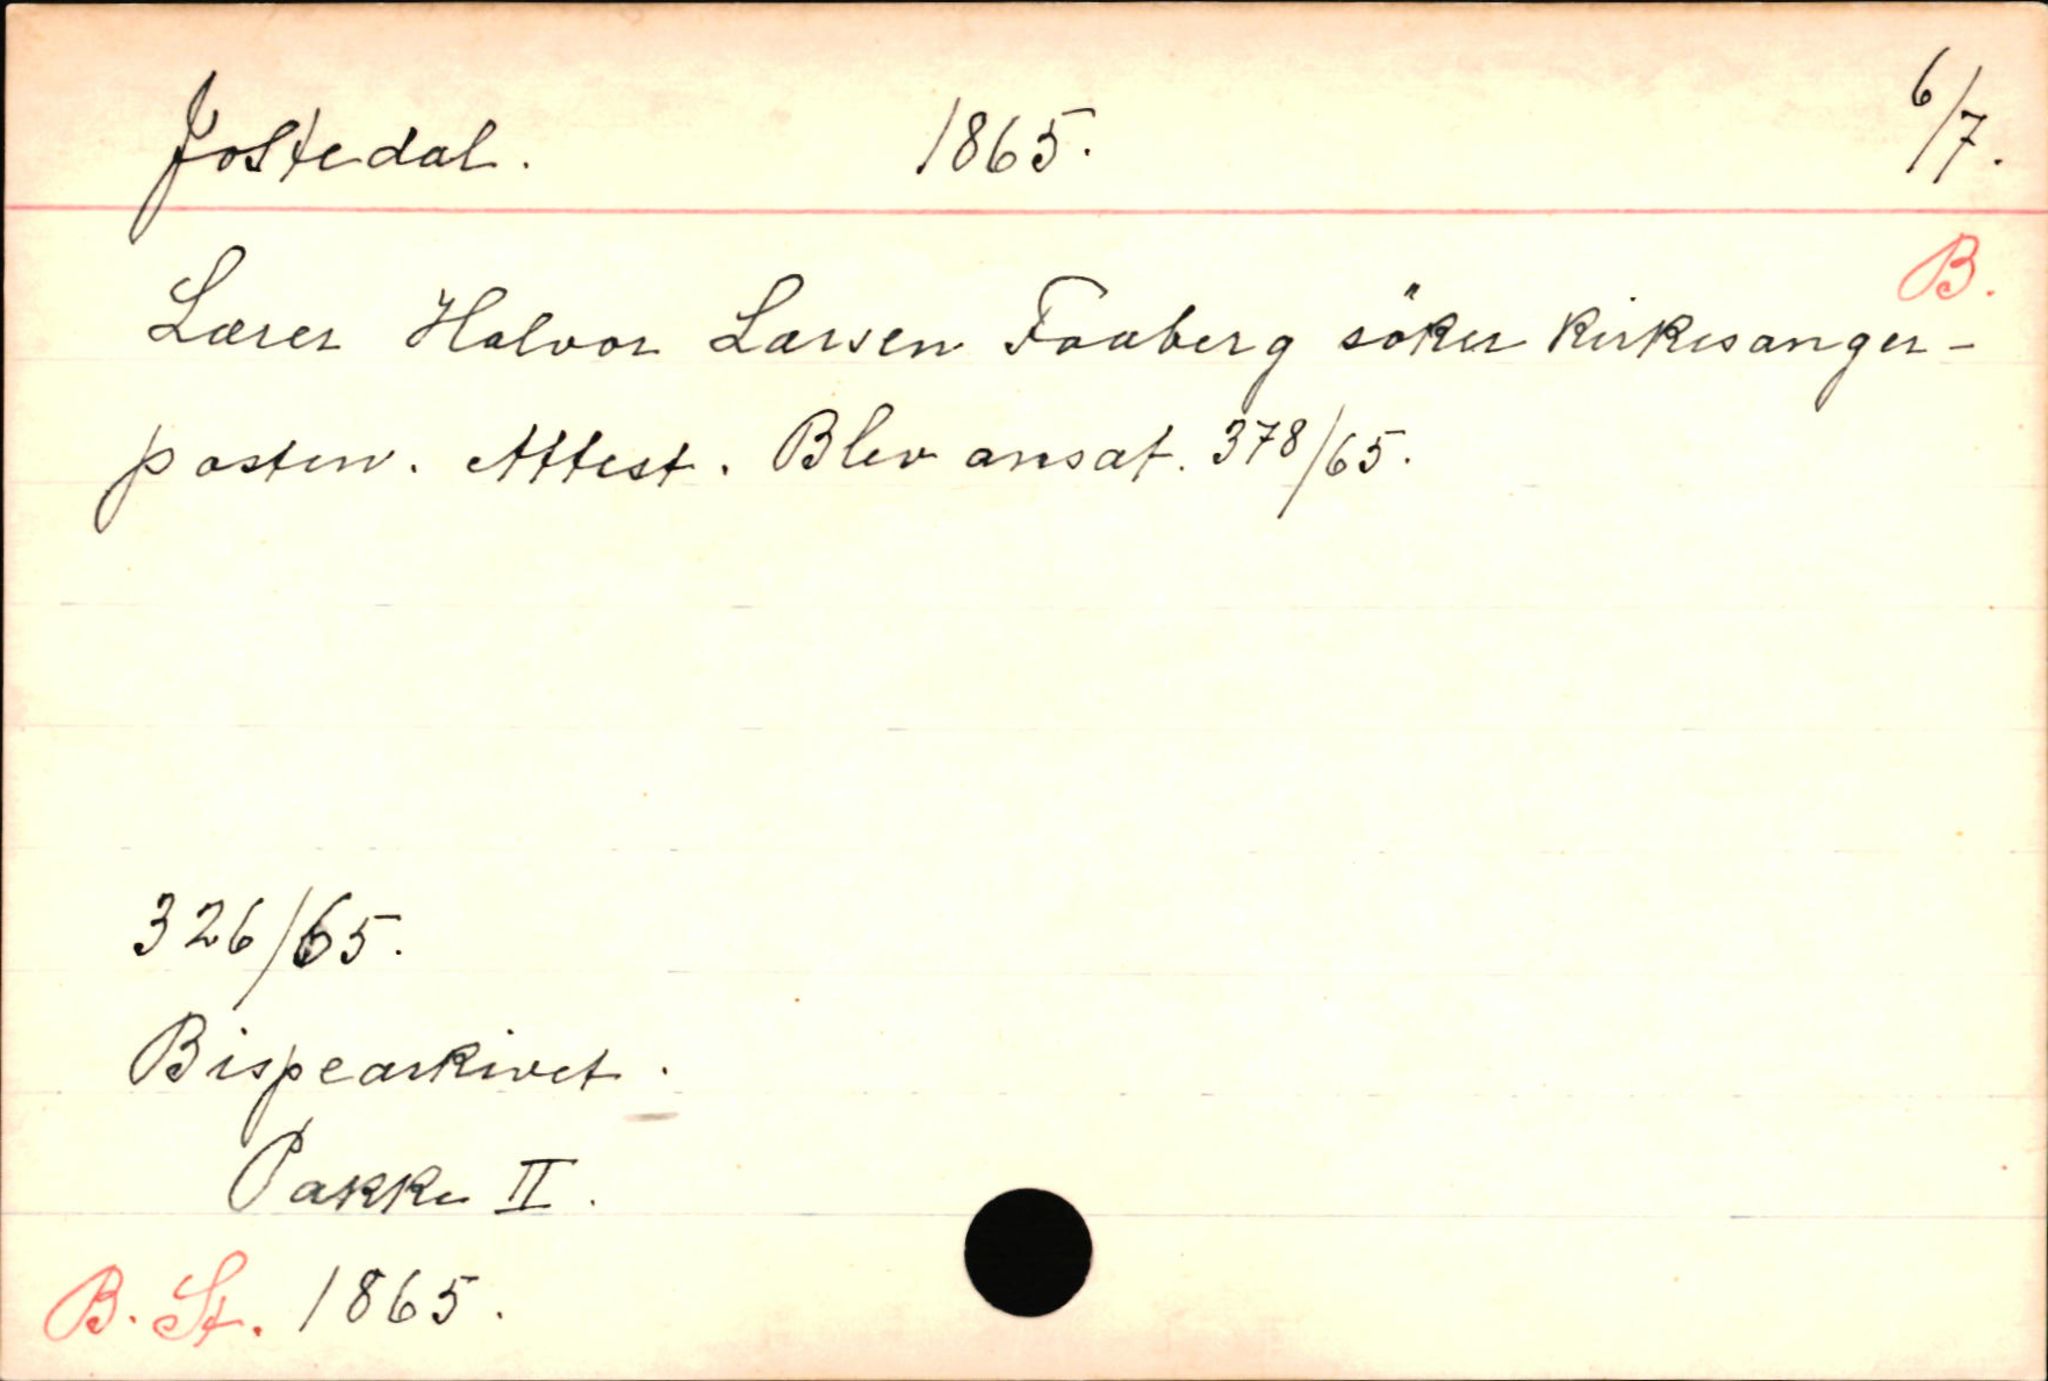 Jostedal. 1865. 6/7.
B.
Lærer Halvor Larsen Faaberg söker kirkesanger-
posten. Attest. Blev ansat. 378/65.
326/65.
Bispearkivet.
Pakke II.
B. St. 1865.